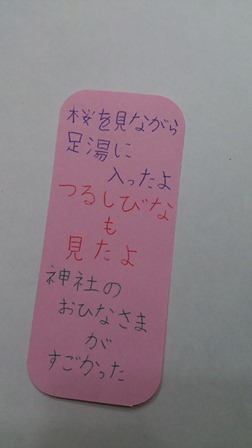 桜を見ながら
足湯に
入ったよ
つるしびな
も
見たよ
神社の
おひなさま
が
すごかった